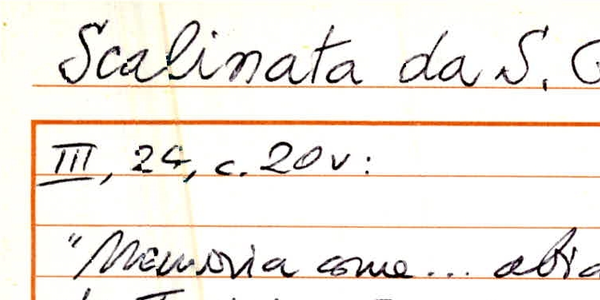 Scalinata da S.
III, 24, c. 20v:
"Memoria come... abia